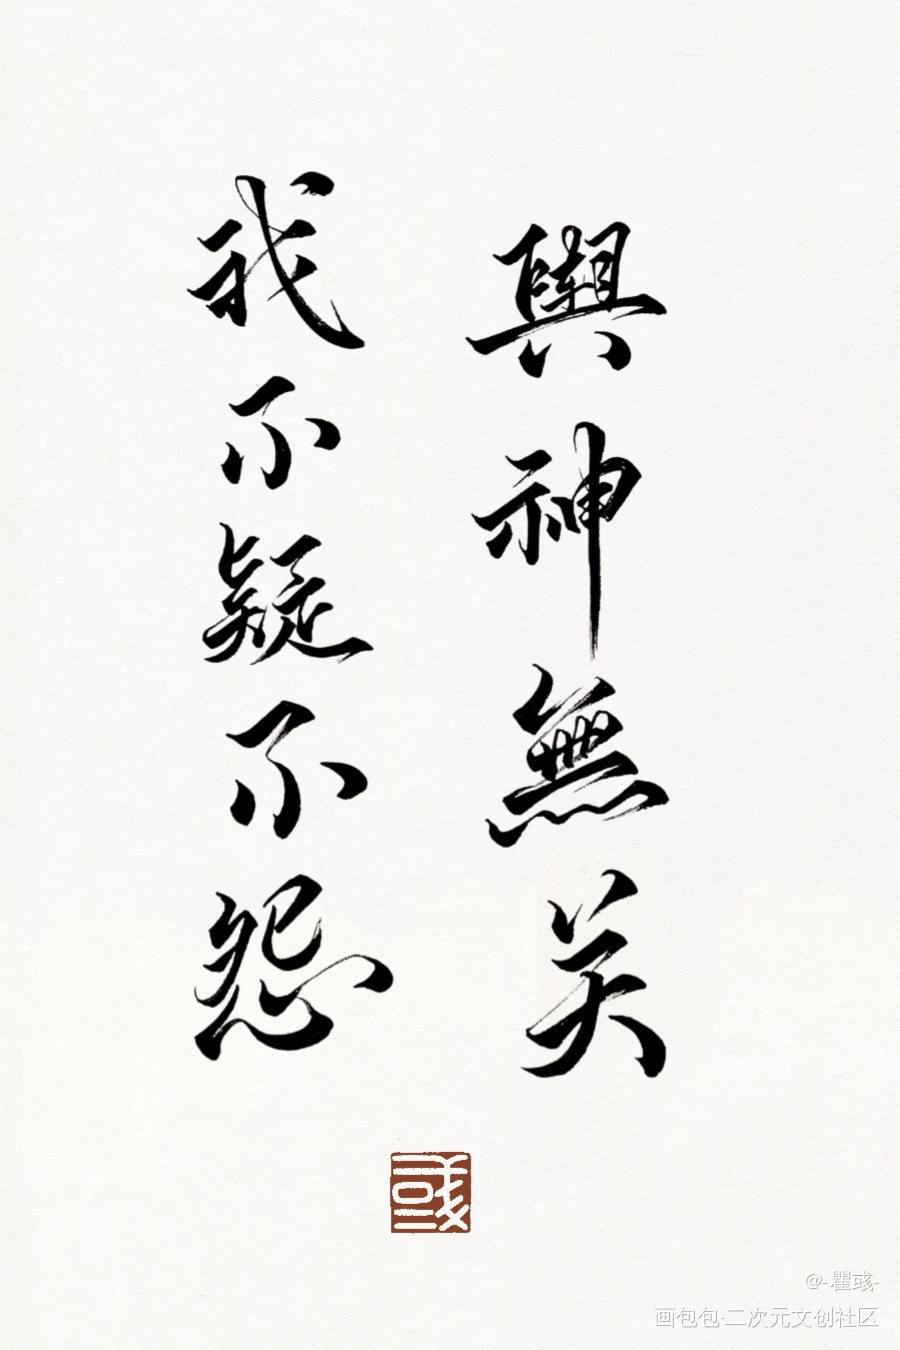 與神無关
我不疑不怨
彧
@-瞿彧-
画包包·二次元文创社区